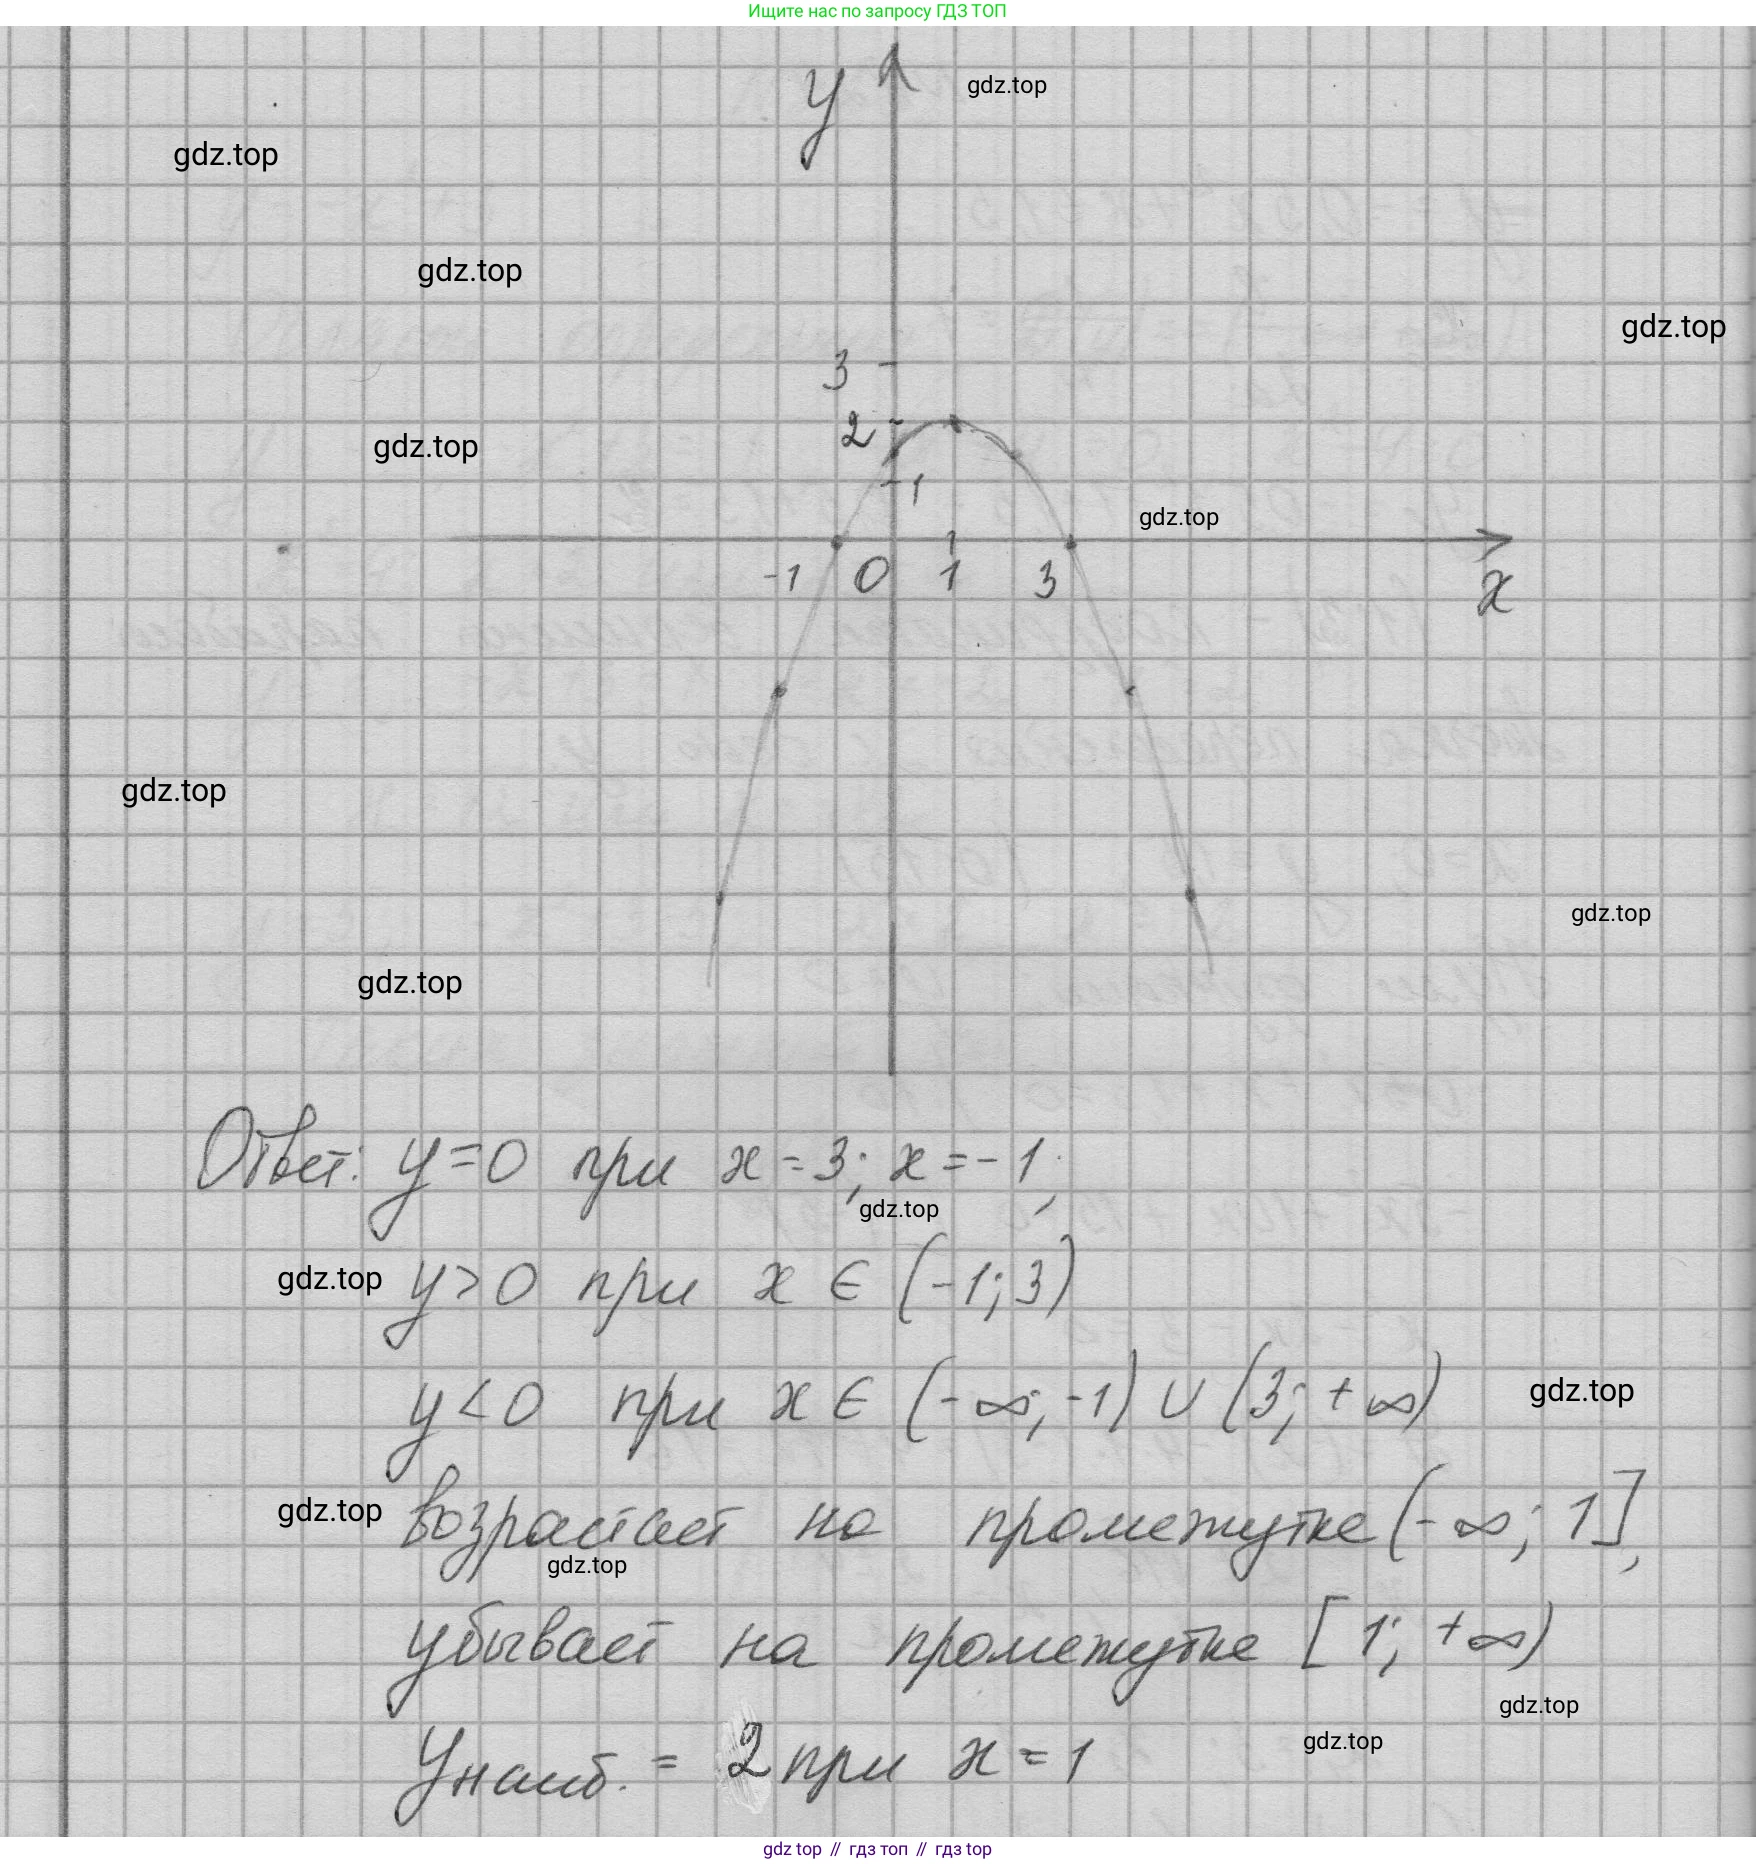 Ищите нас по запросу ГДЗ ТОП
y
gdz.top
gdz.top
gdz.top
gdz.top
3
2
gdz.top
1
gdz.top
-1 0 1 3
x
gdz.top
gdz.top
gdz.top
Ответ: y=0 при x=3; x=-1;
gdz.top
gdz.top
y>0 при x ∈ (-1; 3)
y<0 при x ∈ (-∞; -1) ∪ (3; +∞)
gdz.top
gdz.top
возрастает на промежутке (-∞; 1],
gdz.top
убывает на промежутке [1; +∞)
gdz.top
gdz.top
yнаиб. = 2 при x = 1
gdz top // гдз топ // гдз top